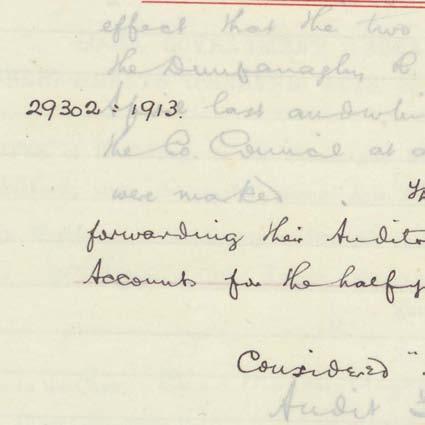 effect that the two
the Dunfanaghy R
April last and whi
29302 : 1913.
the Co. Council at a
were marked.
forwarding their Audito
Accounts for the half y
Considered "
Audit